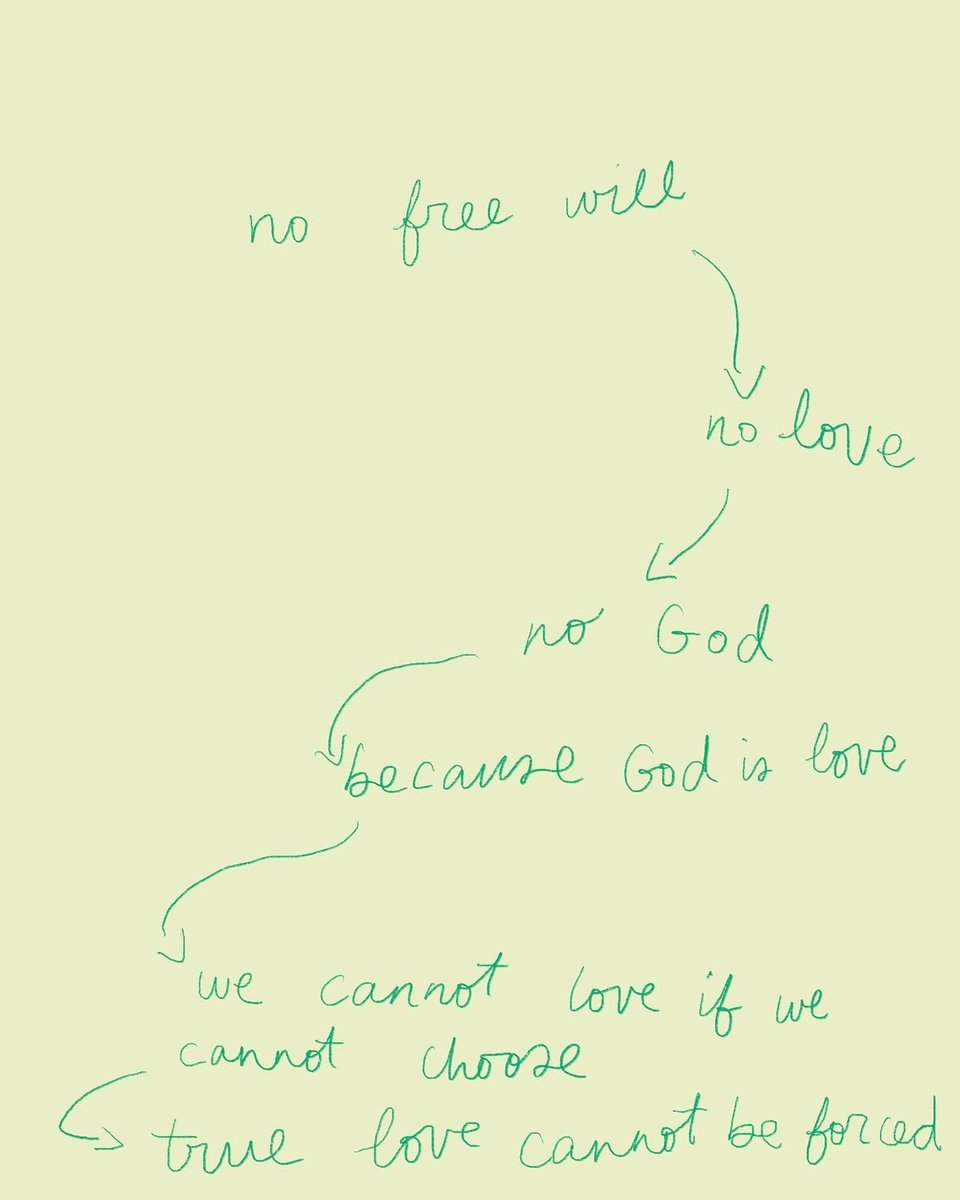 no free will
no love
no God
because God is love
we cannot love if we
cannot choose
true love cannot be forced